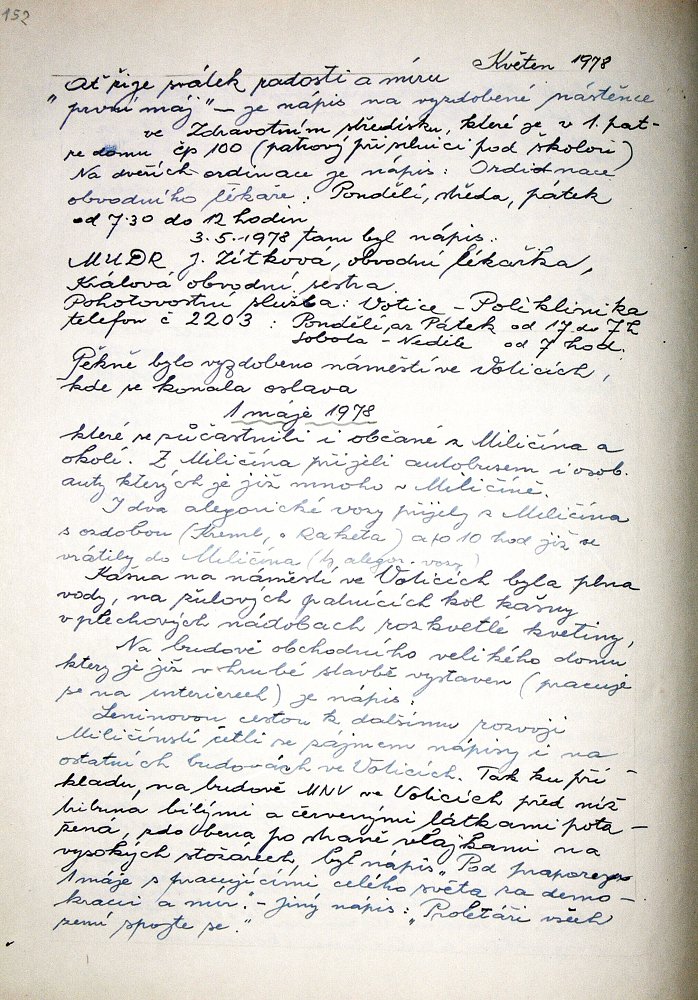 152
Květen 1978
Ať žije svátek radosti a míru
"první máj" – je nápis na vyzdobené nástěnce
ve Zdravotním středisku, které je v 1. pat-
ře domu čp 100 (patrový při silnici pod školou)
Na dveřích ordinace je nápis: Ordidnace
obvodního lékaře: Pondělí, středa, pátek
od 7.30 do 12 hodin
3.5.1978 tam byl nápis:
MUDR J. Zítková, obvodní lékařka,
Králová obvodní sestra.
Pohotovostní služba: Votice – Poliklinika
telefon č 2203: Pondělí, až Pátek od 17 do 7 h
Sobota – Neděle od 7 hod.
Pěkně bylo vyzdobeno náměstí ve Voticích,
kde se konala oslava
1 máje 1978
které se zůčastnili i občané z Miličína a
okolí. Z Miličína přijeli autobusem i osob.
auty kterých je již mnoho v Miličíně.
I dva alegorické vozy přijely z Miličína
s ozdobou (Kreml, Raketa) a v 10 hod již se
vrátily do Miličína (ty alegor. vozy)
Kašna na náměstí ve Voticích byla plna
vody, na žulových patnících kol kašny
v plechových nádobách rozkvetlé květiny,
Na budově obchodního velikého domu
ktery je již v hrubé stavbě vystaven (pracuje
se na interierech) je nápis:
Leninovou cestou k dalšímu rozvoji
Miličínští četli se zájmem nápisy i na
ostatních budovách ve Voticích. Tak ku pří-
kladu, na budově MNV ve Voticích před níž
tribuna bílými a červenými látkami pota-
žená, zdobena po straně vlajkami na
vysokých stožárech, byl nápis "Pod praporem
1 máje s pracujícími celého světa za demo-
kracii a mír". – Jiný nápis: "Proletáři všech
zemí spojte se."